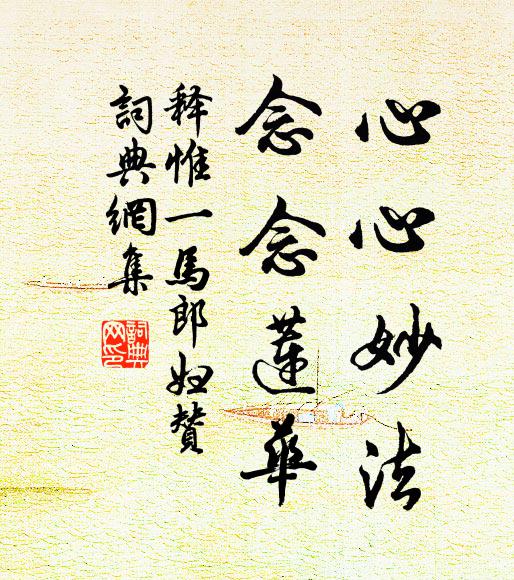 心心妙法
念念蓮華
释惟一馬郎妇赞
詞典網集
詞典网印